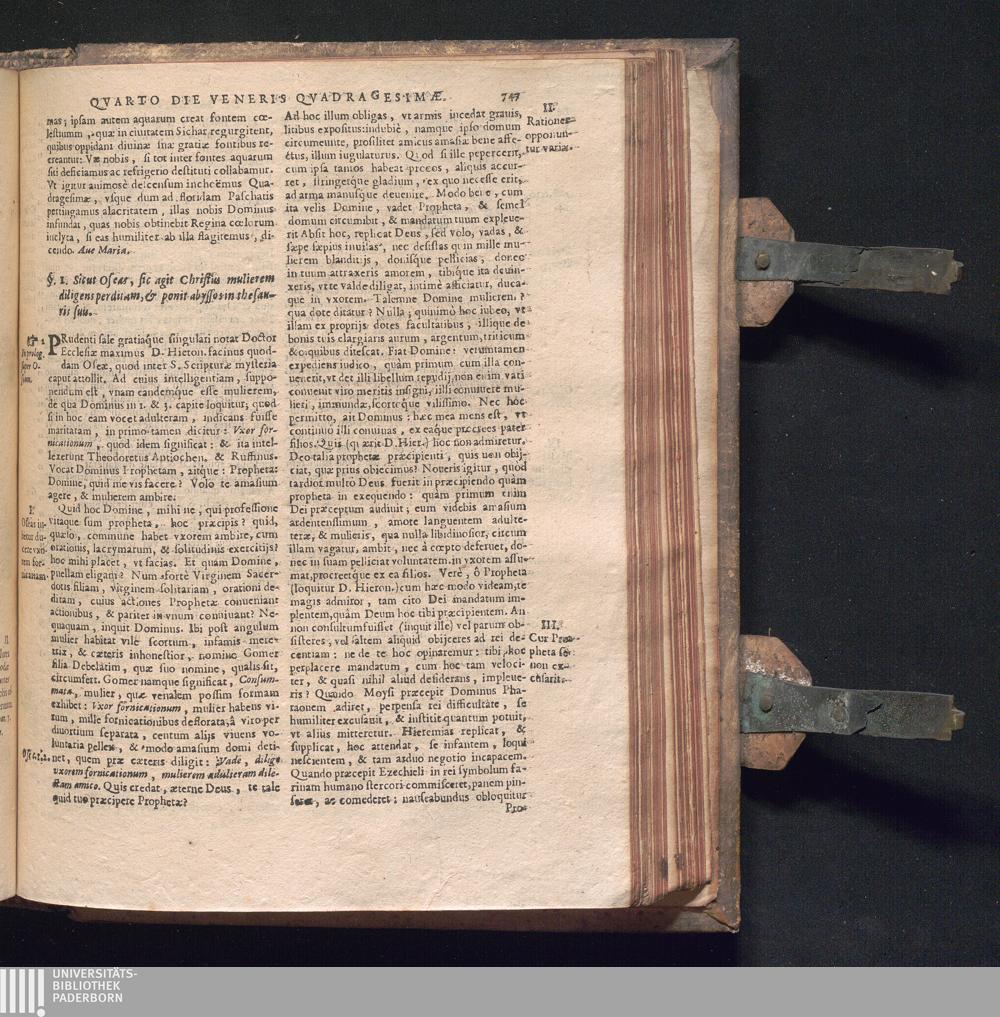 QVARTO DIE VENERIS QVADRAGESIMÆ.
mas; ipsam autem aquarum creat fontem cœ-
quæ in ciuitatem Sichar regurgitent,
quibus oppidani diuinæ suæ gratiæ fontibus re-
creantur: Væ nobis, si tot inter fontes aquarum
siti deficiamus ac refrigerio destituti collabamur.
Vt igitur animosè descensum inchoëmus Qua-
dragesimæ, vsque dum ad floridam Paschatis
pertingamus alacritatem, illas nobis Dominus
infundat, quas nobis obtinebit Regina cœlorum
inclyta, si eas humiliter ab illa flagitemus, di-
cendo. Aue Maria.
§. 1. Sicut Oseas, sic agit Christus mulierem
diligens perditam, & ponit abyssos in thesau-
ris suis.
PRudenti sale gratiaque singulari notat Doctor
Ecclesiæ maximus D. Hieron. facinus quod-
dam Oseæ, quod inter S. Scripturæ mysteria
caput attollit. Ad cuius intelligentiam, suppo-
nendum est, vnam eandemque esse mulierem,
de qua Dominus in 1. & 3. capite loquitur; quod
si in hoc eam vocet adulteram, indicans fuisse
maritatam, in primo tamen dicitur: Vxor for-
nicationum, quod idem significat: & ita intel-
lexerunt Theodoretus Antiochen. & Ruffinus.
Vocat Dominus Prophetam, aitque: Propheta:
Domine, quid me vis facere? Volo te amasium
agere, & mulierem ambire.
Quid hoc Domine, mihi ne, qui professione
vitaque sum propheta, hoc præcipis? quid,
quæso, commune habet vxorem ambire, cum
orationis, lacrymarum, & solitudinis exercitijs?
hoc mihi placet, vt facias. Et quam Domine,
puellam eligam? Num fortè Virginem Sacer-
dotis filiam, virginem solitariam, orationi de-
ditam, cuius actiones Prophetæ conueniant
actionibus, & pariter in vnum conniuant? Ne-
quaquam, inquit Dominus. Ibi post angulum
mulier habitat vile scortum, infamis mere-
trix, & cæteris inhonestior, nomine Gomer
filia Debelaim, quæ suo nomine, qualis sit,
circumfert. Gomer namque significat, Consum-
mata, mulier, quæ venalem possim formam
exhibet: Vxor fornicationum, mulier habens vi-
rum, mille fornicationibus deflorata, à viro per
diuortium separata, centum alijs viuens vo-
luntaria pellex, & modo amasium domi deti-
net, quem præ cæteris diligit: Vade, dilige
vxorem fornicationum, mulierem adulteram dile-
ctam amico. Quis credat, æterne Deus, te tale
quid tuo præcipere Prophetæ?
I.
Ad hoc illum obligas, vt armis incedat grauis,
litibus expositus: indubiè, namque ipso domum
circumeunte, prosiliet amicus amasiæ bene affe-
ctus, illum iugulaturus. Quod si ille pepercerit,
cum ipsa tantos habeat procos, aliquis accur-
ret, stringetque gladium, ex quo necesse erit,
ad arma manusque deuenire. Modo bene, cum
ita velis Domine, vadet Propheta, & semel
domum circumibit, & mandatum tuum expleue-
rit Absit hoc, replicat Deus, sed volo, vadas, &
sæpe sæpius inuisas, nec desistas quin mille mu-
lierem blanditijs, donisque pellicias, donec
in tuum attraxeris amorem, tibique ita deuin-
xeris, vt te valde diligat, intimè afficiatur, duca-
que in vxorem. Talemne Domine mulierem?
qua dote ditatur? Nulla; quinimò hoc iubeo, vt
illam ex proprijs dotes facultatibus, illique de
bonis tuis elargiaris aurum, argentum, triticum
& quibus ditescat. Fiat Domine: verumtamen
expediens iudico, quàm primum cum illa con-
uenerit, vt det illi libellum repudij, non enim vati
conuenit viro meritis insigni, illi conuiuere mu-
lieri, immundæ, scortoque vilissimo. Nec hoc
permitto, ait Dominus: hæc mea mens est, vt
continuò illi conuiuas, ex eaque procrees pater
filios. Quis (quærit D. Hier.) hoc non admiretur.
Deo talia prophetæ præcipienti, quis non obij-
ciat, quæ prius obiecimus? Noueris igitur, quòd
tardior multò Deus fuerit in præcipiendo quàm
propheta in exequendo: quàm primum enim
Dei præceptum audiuit; eum videbis amasium
ardentissimum, amore languentem adulte-
ræ, & mulieris, qua nulla libidinosior, circum
illam vagatur, ambit, nec à cœpto deferuet, do-
nec in suam pelliciat voluntatem, in vxorem assu-
mat, procreetque ex ea filios. Verè, ô Propheta
(loquitur D. Hieron.) cum hæc modo videam, te
magis admiror, tam cito Dei mandatum im-
plentem, quàm Deum hoc tibi præcipientem. An
non consultum fuisset (inquit ille) vel parum ob-
sisteres, vel saltem aliquid obijceres ad rei de-
centiam: ne de te hoc opinaremur: tibi hoc
perplacere mandatum, cum hoc tam veloci-
ter, & quasi nihil aliud desiderans, impleue-
ris? Quando Moysi præcepit Dominus Pha-
raonem adiret, perpensa rei difficultate, se
humiliter excusauit, & institit quantum potuit,
vt alius mitteretur. Hieremias replicat, &
supplicat, hoc attendat, se infantem, loqui
nescientem, & tam arduo negotio incapacem.
Quando præcepit Ezechieli in rei symbolum fa-
rinam humano stercori commisceret, panem pin-
seret, ac comederet: nauseabundus obloquitur
Pro-
II.
Rationes
opponun-
tur variæ.
III.
Cur Pro-
pheta se
non ex-
cusarit.
UNIVERSITÄTS-
BIBLIOTHEK
PADERBORN